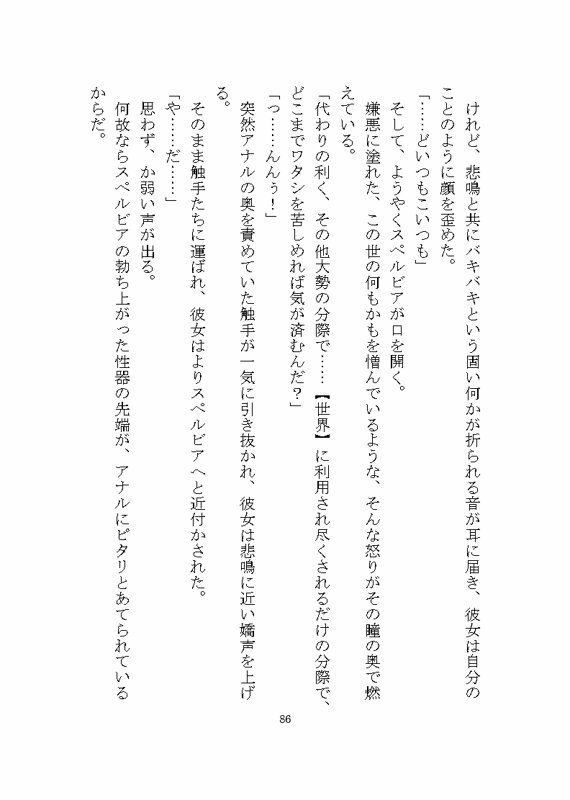 けれど、悲鳴と共にバキバキという固い何かが折られる音が耳に届き、彼女は自分の
ことのように顔を歪めた。
「……どいつもこいつも」
そして、ようやくスペルビアが口を開く。
嫌悪に塗れた、この世の何もかもを憎んでいるような、そんな怒りがその瞳の奥で燃
えている。
「代わりの利く、その他大勢の分際で……【世界】に利用され尽くされるだけの分際で、
どこまでワタシを苦しめれば気が済むんだ？」
「っ……んんぅ！」
突然アナルの奥を責めていた触手が一気に引き抜かれ、彼女は悲鳴に近い嬌声を上げ
る。
そのまま触手たちに運ばれ、彼女はよりスペルビアへと近付かされた。
「や……だ……」
思わず、か弱い声が出る。
何故ならスペルビアの勃ち上がった性器の先端が、アナルにピタリとあてられている
からだ。
86